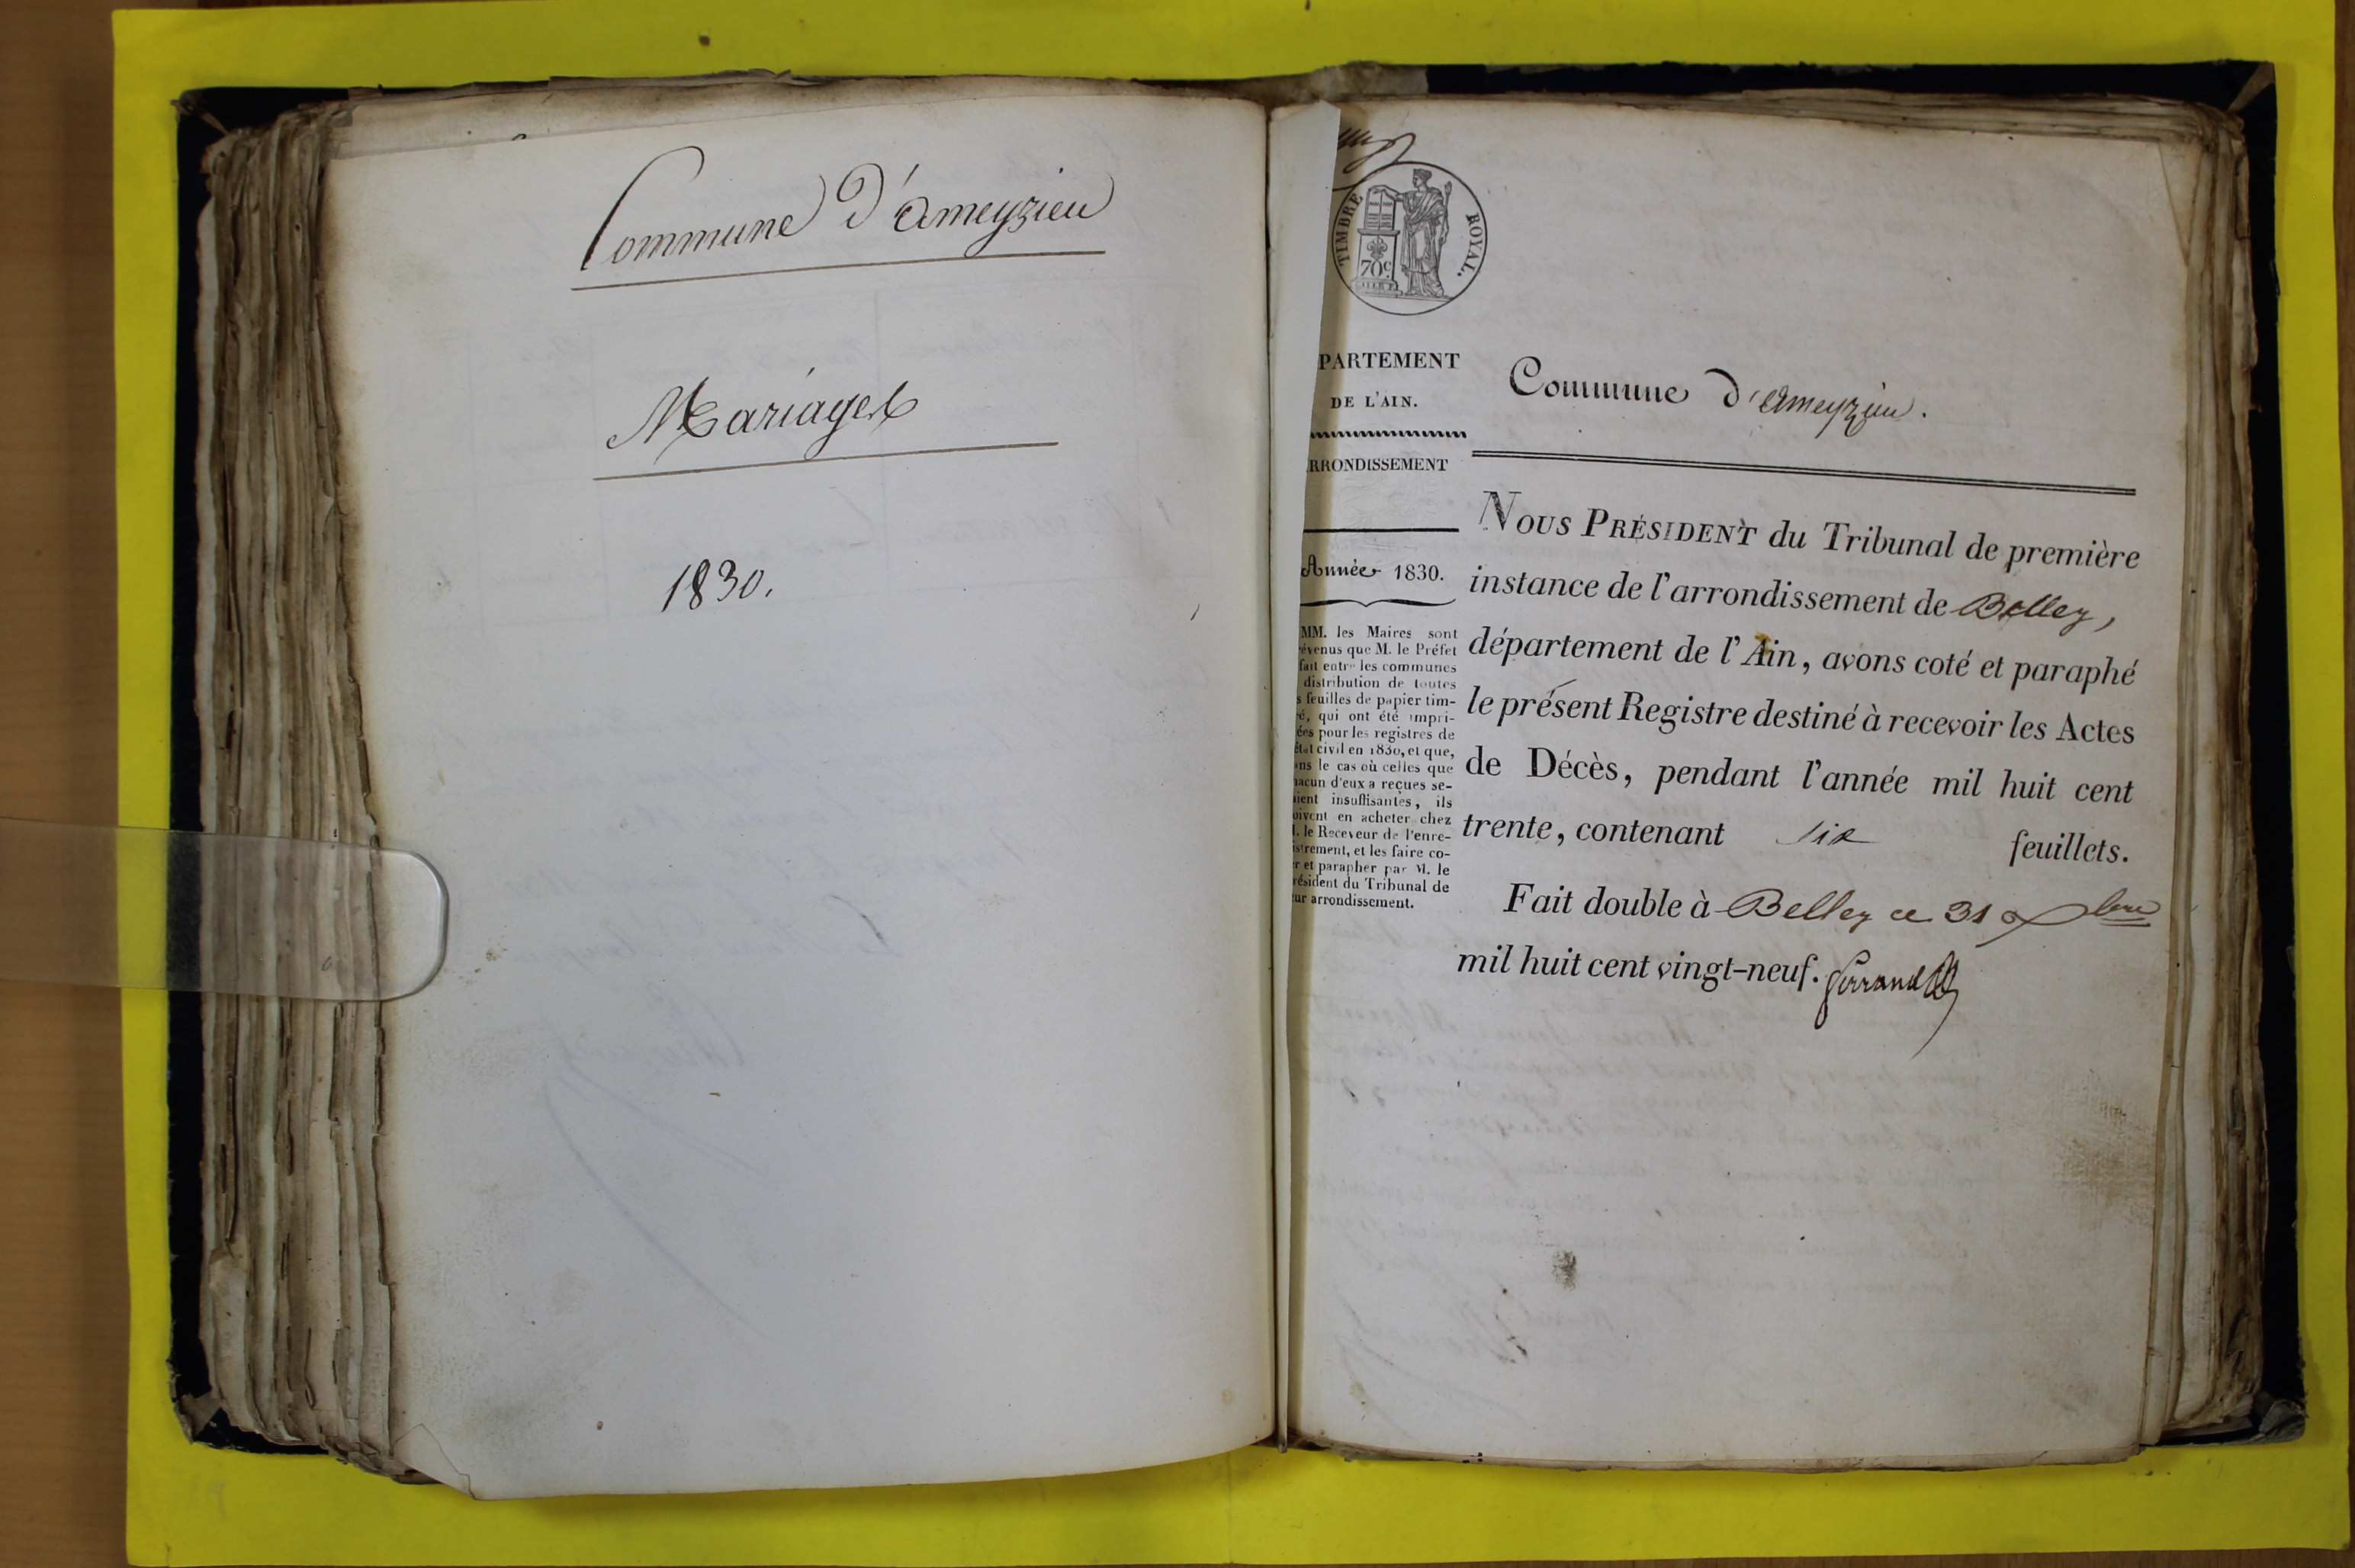 Commune d'ameyzieu
Mariages
1830.
TIMBRE ROYAL.
70c.
PARTEMENT
DE L'AIN.
RRONDISSEMENT
Année 1830.
MM. les Maires sont
évenus que M. le Préfet
fait entre les communes
distribution de toutes
s feuilles de papier tim-
é, qui ont été impri-
ées pour les registres de
état civil en 1830, et que,
ans le cas où celles que
hacun d'eux a reçues se-
aient insuffisantes, ils
oivent en acheter chez
I. le Receveur de l'enre-
istrement, et les faire co-
er et parapher par M. le
résident du Tribunal de
eur arrondissement.
Commune d'ameyzieu.
NOUS PRÉSIDENT du Tribunal de première
instance de l'arrondissement de Belley,
département de l'Ain, avons coté et paraphé
le présent Registre destiné à recevoir les Actes
de Décès, pendant l'année mil huit cent
trente, contenant six feuillets.
Fait double à Belley ce 31 Xbre
mil huit cent vingt-neuf.